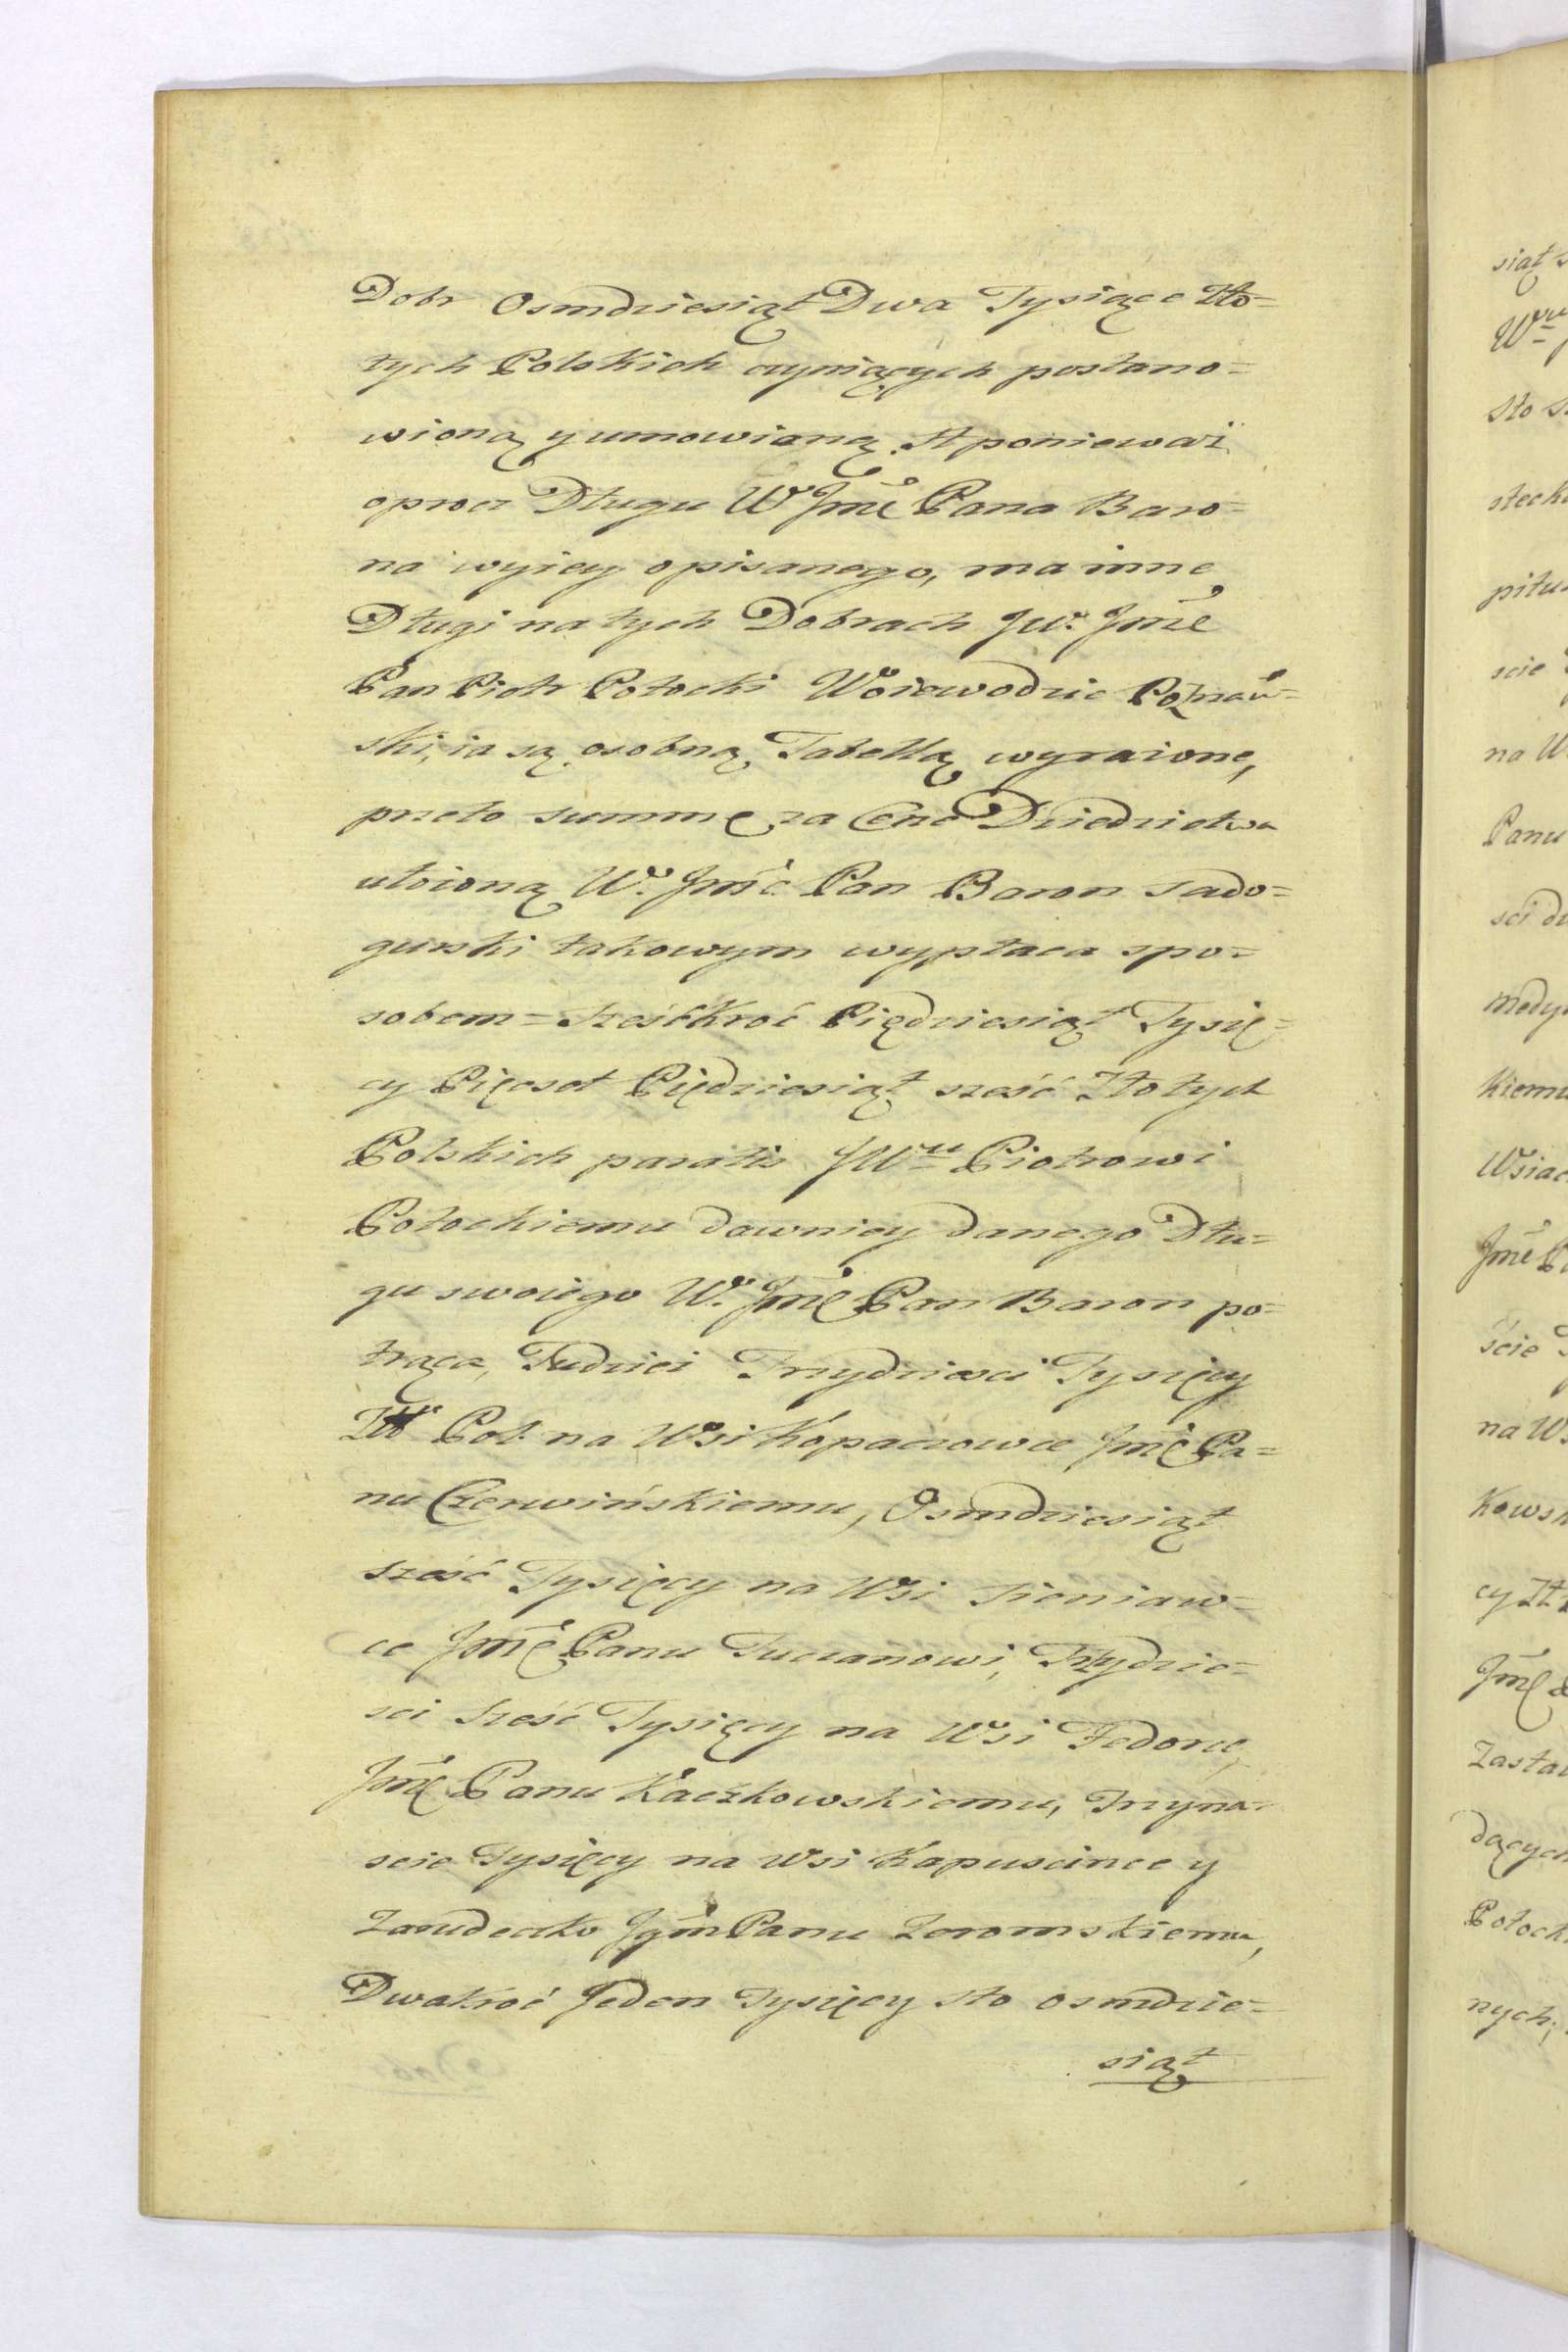 Dobr Osmdziesiąt Dwa Tysiące Zło=
tych Polskich czyniących postano=
wioną y umowioną. A ponieważ
oprocz Długu W° Jmć Pana Baro=
na wyżey opisanego, ma inne
Długi na tych Dobrach JW. Jmć
Pan Piotr Potocki Woiewodzic Poznań=
ski, ia są osobną Tabellą wyrażone,
przeto summę za Cenę Dziedzictwa
ułożoną W. Jmść Pan Baron Sado=
gurski takowym wypłaca spo=
sobem = Sześćkroć Piędziesiąt Tysię=
cy Pięcset Piędziesiąt sześć Złotych
Polskich paratis JWu Piotrowi
Potockiemu dawniey danego Dłu=
gu swoiego W. Jmć Pan Baron po=
trąca, Tudzież Trzydziesci Tysięcy
Złł Pol. na Wsi Kopaczowce Jmć Pa=
nu Czerwińskiemu, Osmdziesiąt
sześć Tysięcy na Wsi Sieniaw=
ce Jmć Panu Tuczanowi, Trzydzie=
sci Sześć Tysięcy na Wsi Fedorce,
Jmć Panu Kaczkowskiemu, Trzyna=
scie Tysięcy na Wsi Kapuscince y
Zarudeczko Jgm Panu Zeromskiemu,
Dwakroć Jeden Tysięcy sto osmdzie=
siąt
siąt
Wu
sto
steck
pitu
scie
na W
Panu
sci d
medy
Kiemu
Wsiac
Jmć
ście
na W
Kowsk
cy Zł
Jmć
Zasta
dących
Potock
nych;